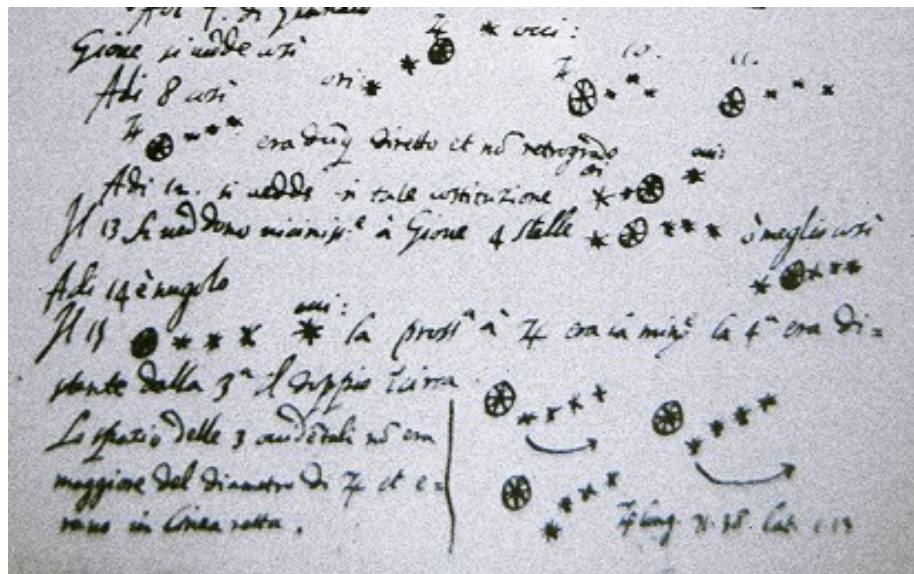 Adi 7. di Gennaio
Gione si vedde così ♃ * * * occi:
Adi 8 così ori * 10. 11.
♃ * * * era dūq diretto et nō retrogrado
Adi 12. si vedde in tale costituzione occi:
Il 13 si veddono à Gione 4 stelle ò meglio così
Adi 14 è nugolo
Il 15 * * * * occi: la pross.ª à ♃ era la min.ª la 4ª era di=
stante dalla 3ª il doppio circa
Lo spatio delle 3 occidentali nō era
maggiore del diametro di ♃ et e=
rano in linea retta.
♃ long. 71.38. lat. 1.13